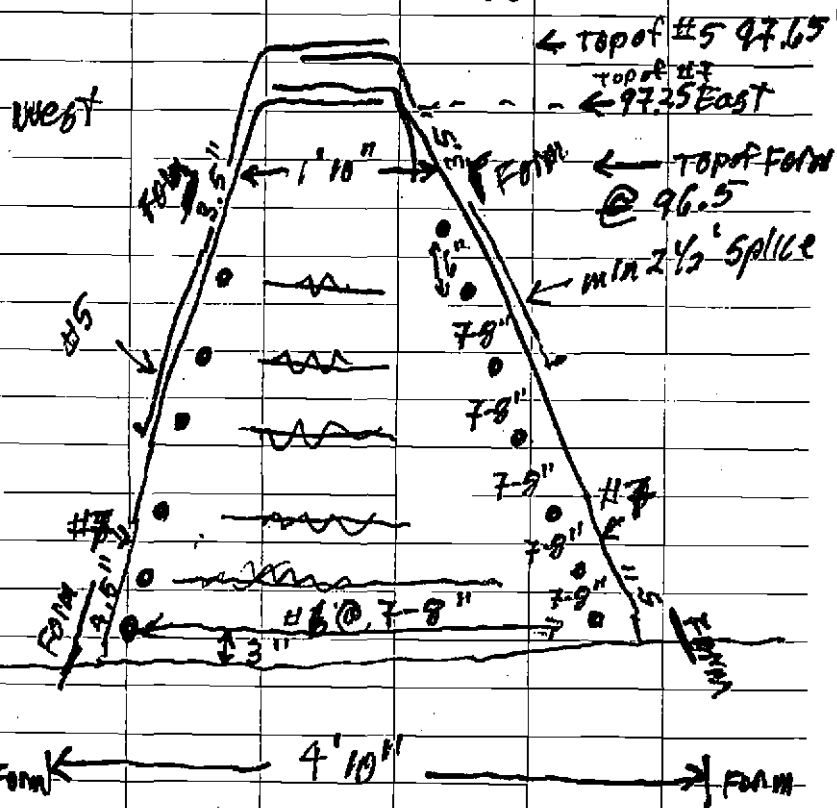 ← Top of #5 97.65
Top of #7
← 97.25 East
West
Form
3.5"
1'10"
3.5
Form
← Top of Form
@ 96.5
6"
min 2 1/2' Splice
#5
7-8"
7-8"
7-8"
7-8"
7-8"
Form
4.5"
# @ 7-8"
3"
5"
Form
Form
4'10"
Form